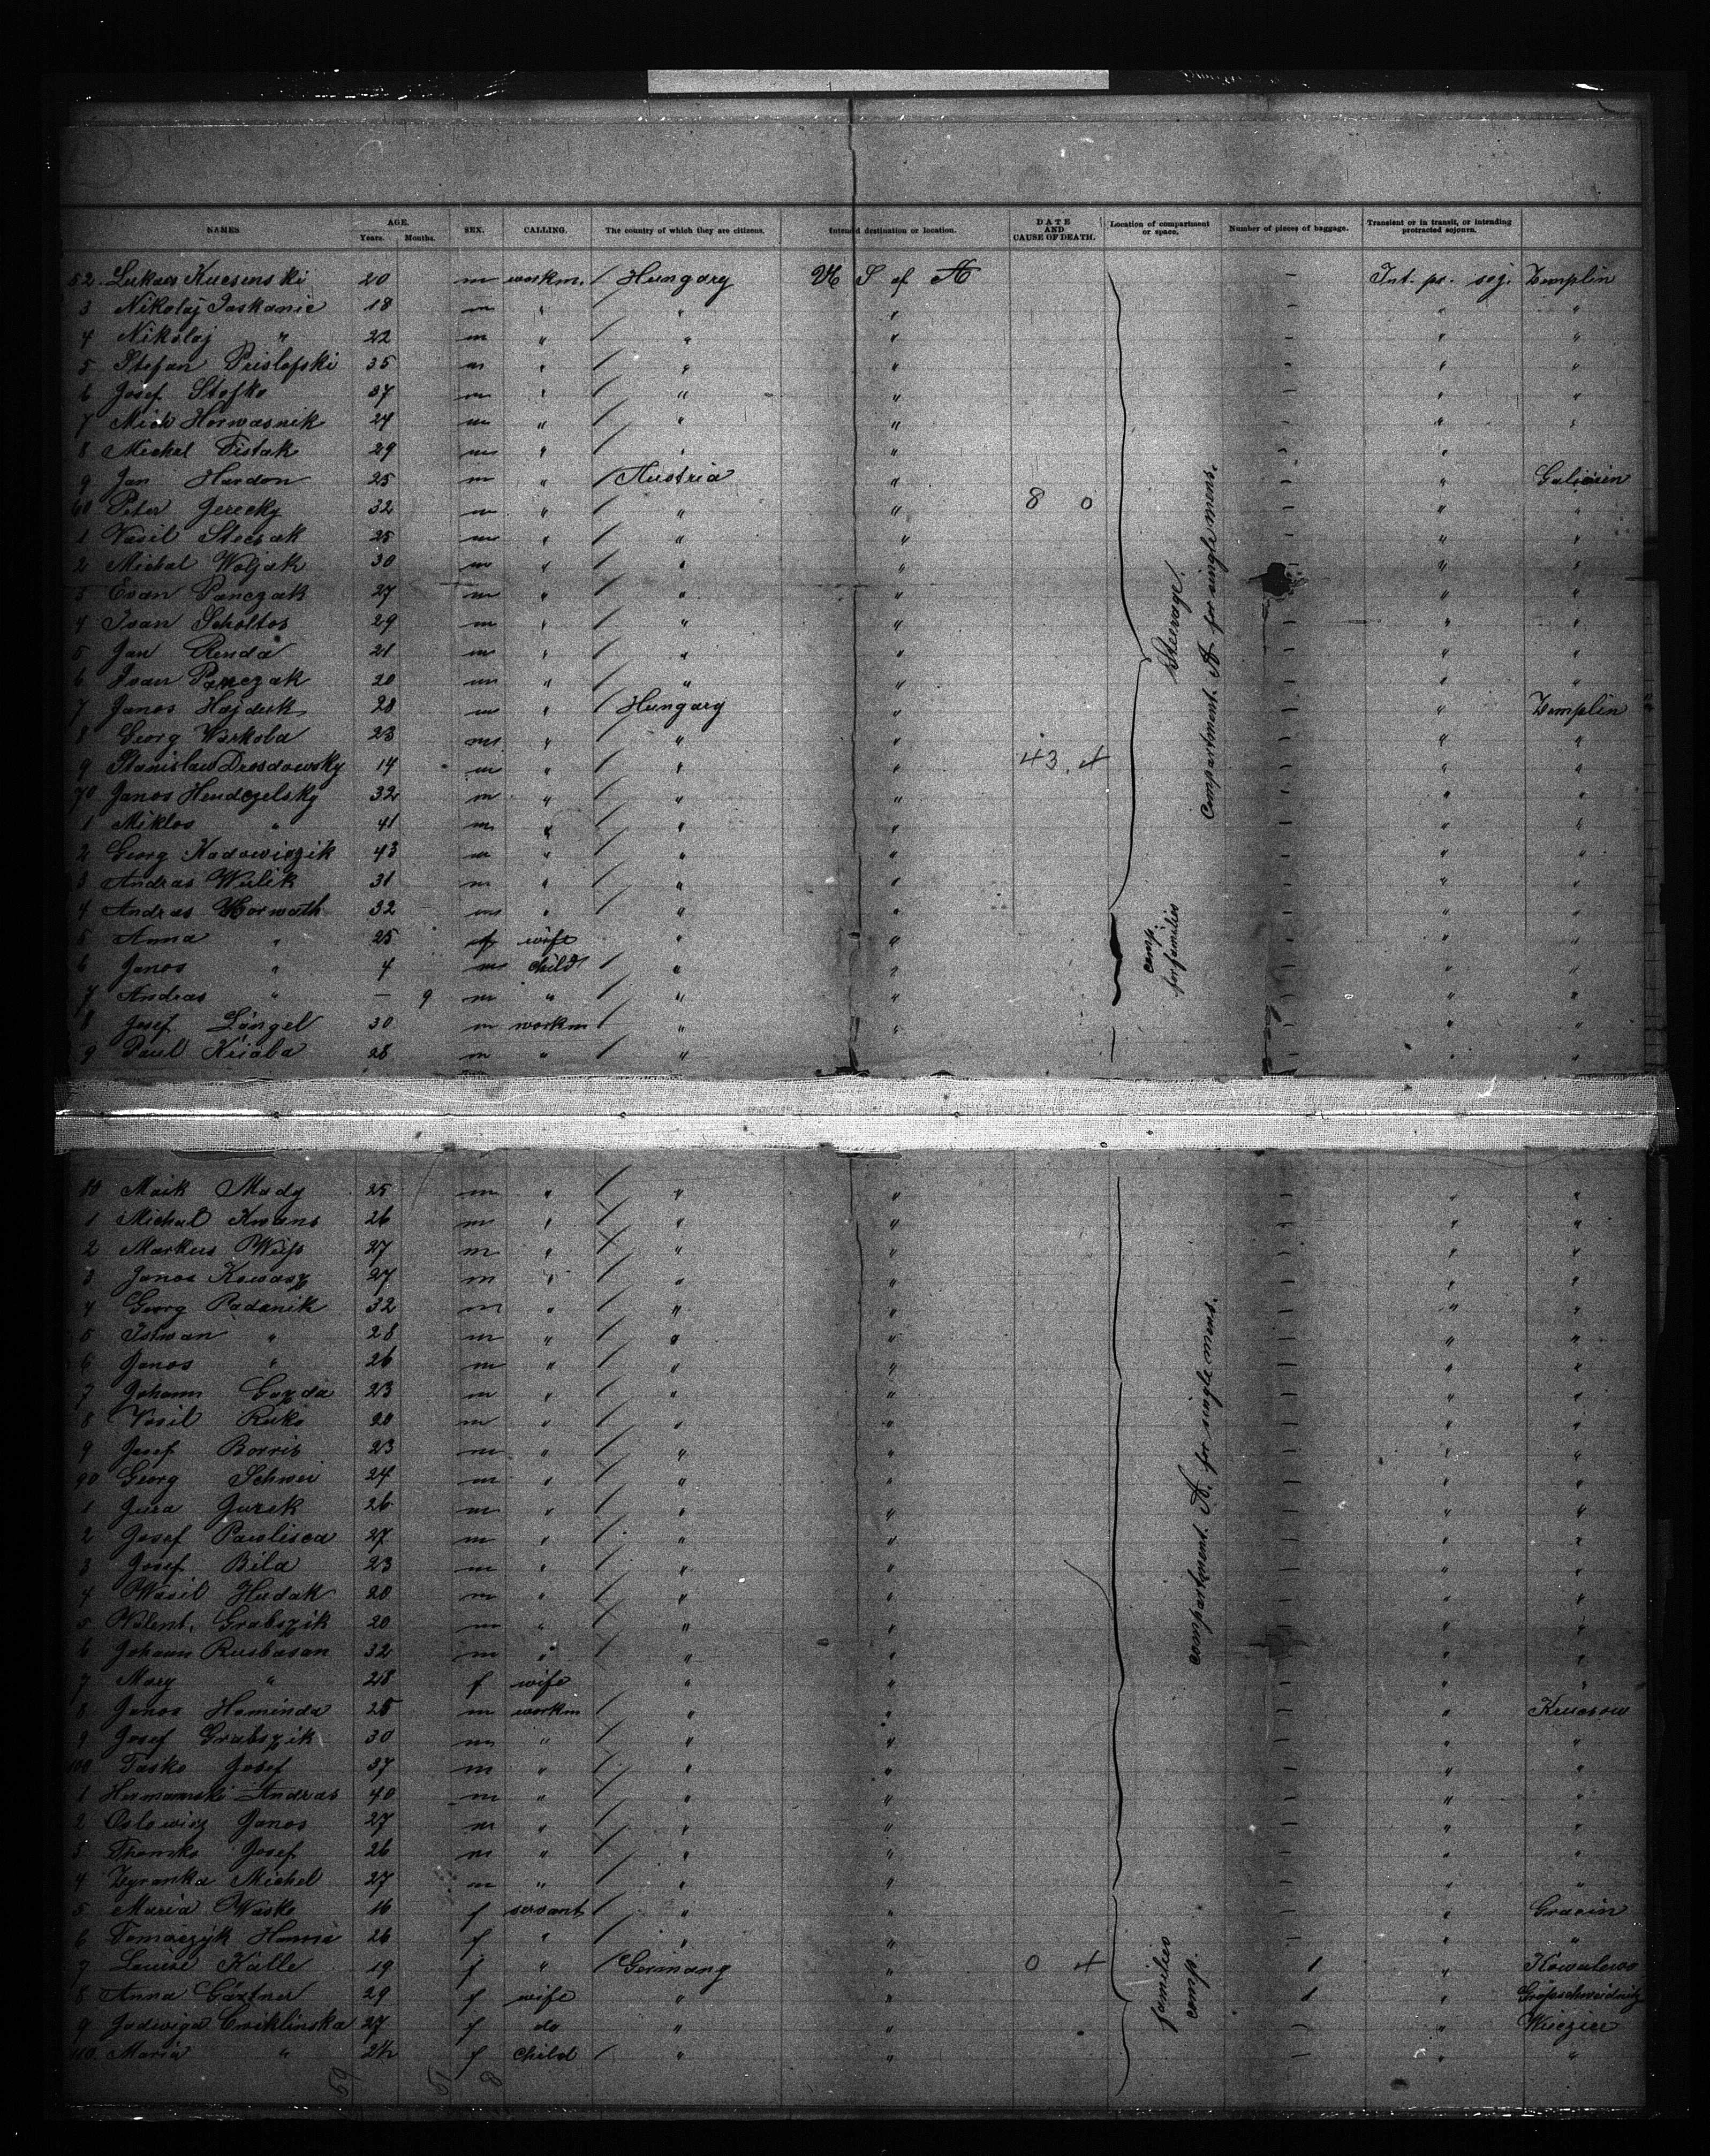 NAMES AGE. Years. Months. SEX. CALLING. The country of which they are citizens. Intended destination or location. DATE AND CAUSE OF DEATH. Location of compartment or space. Number of pieces of baggage. Transient or in transit, or intending protracted sojourn.
52 Lukacs Kucsenski 20 m workm. / Hungary U S of A - Int. pr. soj. Zemplin
3 Nikolaj Jaskanic 18 m " / " " - " "
4 Nikolaj " 22 m " / " " - " "
5 Stefan Prislofski 35 m " / " " - " "
6 Josef Stofko 37 m " / " " - " "
7 Mich Horwasnik 24 m " / " " - " "
8 Michal Fistak 29 m " / " " - " "
9 Jan Hardon 25 m " / Austria " - " Galizien
60 Peter Jerecky 32 m " / " " 8 0 - " "
1 Vasil Stecsak 25 m " / " " - " "
2 Michal Woljak 30 m " / " " - " "
3 Evan Panczak 27 m " / " " - " "
4 Ivan Scholtos 29 m " / " " - " "
5 Jan Renda 21 m " / " " - " "
6 Ivan Panczak 20 m " / " " - " "
7 Janos Hajduk 28 m " / Hungary " - " Zemplin
8 Georg Warkola 23 m " / " " - " "
9 Stanislaw Drosdowsky 14 m " / " " 43. 4 - " "
70 Janos Hendczelsky 32 m " / " " - " "
1 Miklos " 41 m " / " " - " "
2 Georg Kadowiczik 43 m " / " " - " "
3 Andras Wulik 31 m " / " " - " "
Steerage. Compartment. A for single mens.
4 Andras Horwath 32 m " / " " - " "
5 Anna " 25 f wife " " - " "
6 Janos " 4 m child / " " - " "
7 Andras " - 9 m " / " " - " "
comp. for families
8 Josef Längel 30 m workm / " " - " "
9 Paul Kriaba 28 m " / " " - " "
80 Maik Mady 25 m " / " " - " "
1 Michal Kwans 26 m " / " " - " "
2 Markus Weiss 27 m " / " " - " "
3 Janos Kowasz 27 m " / " " - " "
4 Georg Padanik 32 m " / " " - " "
5 Istwan " 28 m " / " " - " "
6 Janos " 26 m " / " " - " "
7 Johann Gazda 23 m " / " " - " "
8 Vasil Ruko 20 m " / " " - " "
9 Josef Borris 23 m " / " " - " "
90 Georg Schwei 24 m " / " " - " "
1 Jura Jurek 26 m " / " " - " "
2 Josef Pawlisca 27 m " / " " - " "
3 Josef Bila 23 m " / " " - " "
4 Wasil Hudak 20 m " / " " - " "
5 Walent. Grabszik 20 m " / " " - " "
6 Johann Rusbasan 32 m " / " " - " "
7 Mary " 28 f wife " " - " "
8 Janos Haminda 25 m workm " " - "
9 Josef Grabszik 30 m " / " " - " "
100 Tasko Josef 37 m " / " " - " "
1 Hermanski Andras 40 m " / " " - " "
2 Oslowicz Janos 27 m " / " " - " "
3 Thomko Josef 26 m " / " " - " "
4 Zyranka Michel 27 m " / " " - " "
compartment. A. for single mens.
5 Maria Wasko 16 f servant / " " - "
6 Tomaczyk Hanna 26 f " / " " - " "
7 Louise Kalle 19 f " / Germany " 0 4 1 " Kowalewo
8 Anna Gärtner 29 f wife " " 1 " Gross
9 Jadwiga Cwiklinska 27 f do " " - "
110 Maria " 2½ f child / " " - " "
families comp.